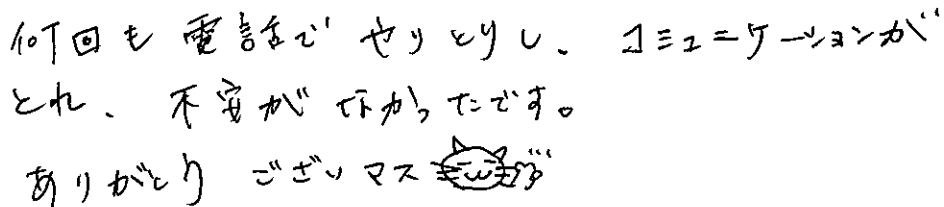 何回も電話でやりとりし、コミュニケーションが
とれ、不安がなかったです。
ありがとう ございマス